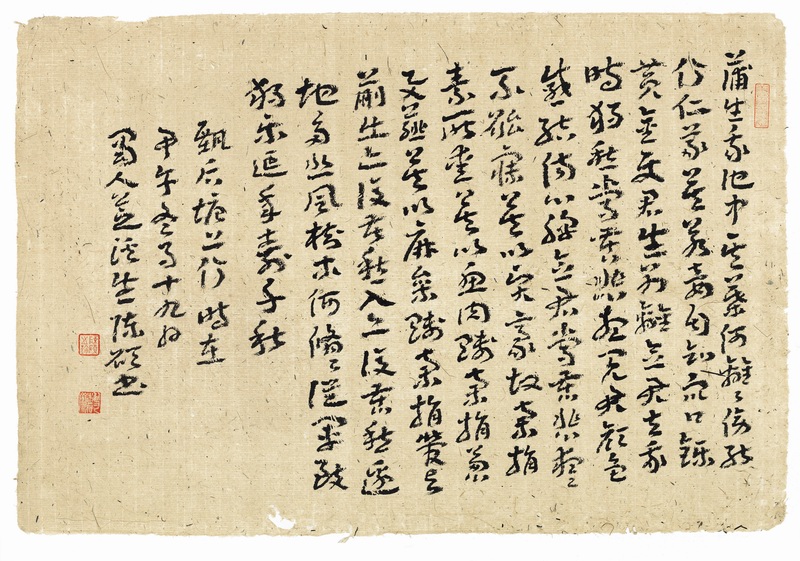 蒲生我池中其葉何離々傍能
行仁義莫若妾自知衆口鑠
黃金使君生別離念君去我
時獨愁常苦悲想見君顏色
感結傷心脾念君常苦悲夜々
不能寐莫以賢豪故棄捐
素所愛莫以魚肉賤棄捐蔥
與薤莫以麻枲賤棄捐菅與
蒯出亦復苦愁入亦復苦愁邊
地多悲風樹木何脩々從軍致
獨樂延年壽千秋
甄后塘上行 時在
甲午冬月十九日
蜀人芝溪生陳碩書